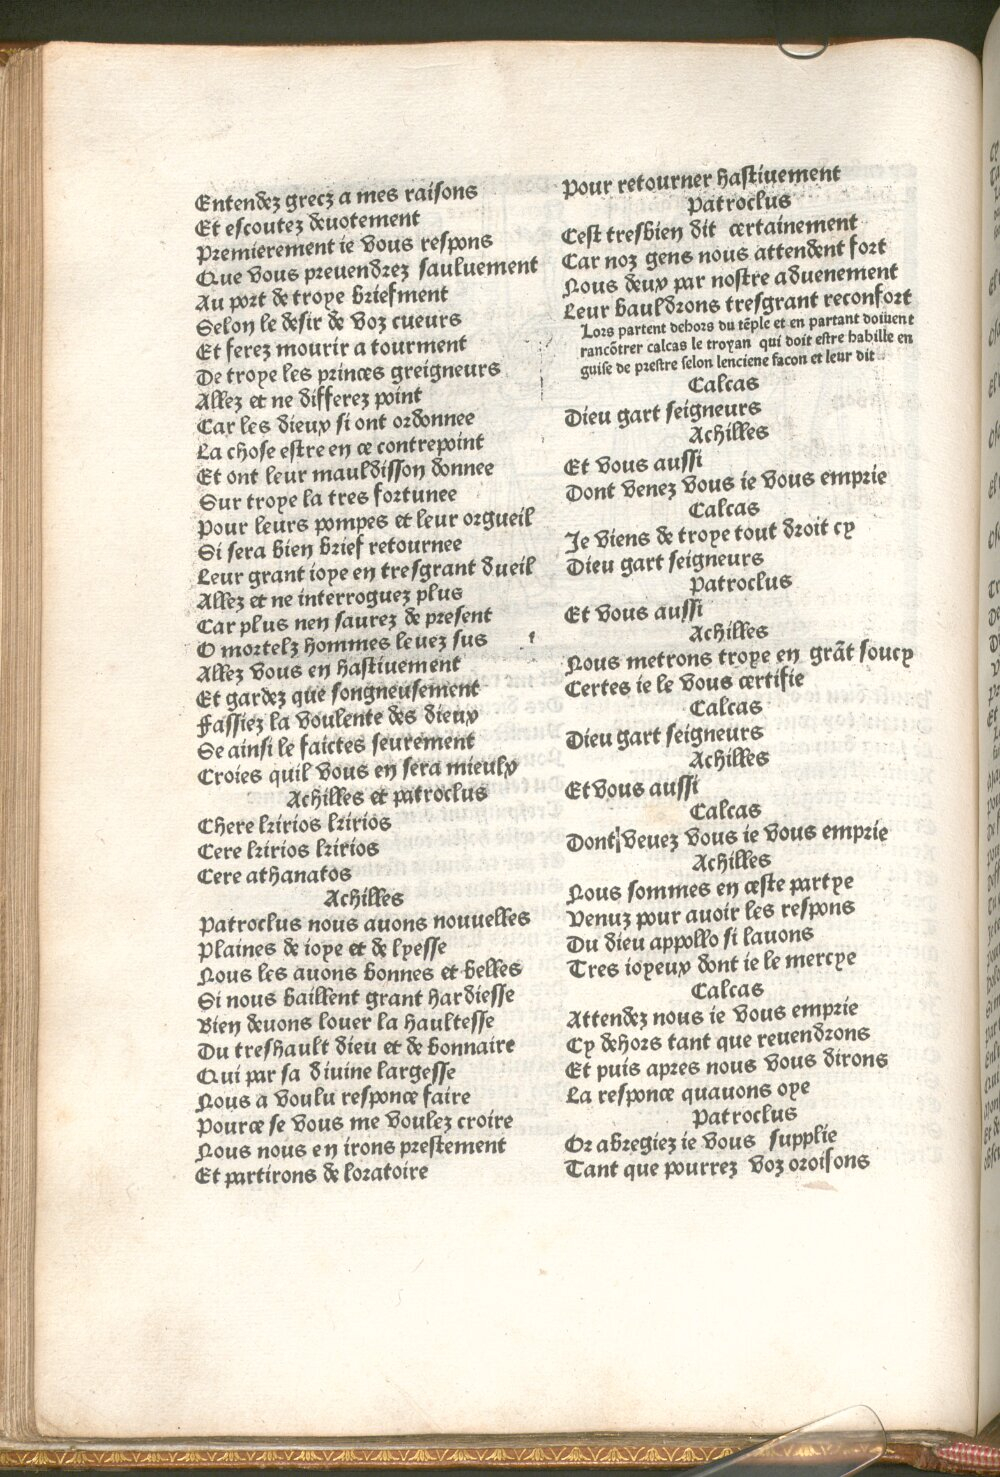 Entendez grecz a mes raisons
Et escoutez deuotement
Premierement ie vous respons
Que vous preuendrez sauluement
Au port de troye briefment
Selon le desir de voz cueurs
Et ferez mourir a tourment
De troye les princes greigneurs
Allez et ne differez point
Car les dieux si ont ordonnee
La chose estre en ce contrepoint
Et ont leur mauldisson donnee
Sur troye la tres fortunee
Pour leurs pompes et leur orgueil
Si sera bien brief retournee
Leur grant ioye en tresgrant dueil
Allez et ne interroguez plus
Car plus nen saurez de present
O mortelz hommes leuez sus
Allez vous en hastiuement
Et gardez que songneusement
Fassiez la voulente des dieux
Se ainsi le faictes seurement
Croies quil vous en sera mieulx
Achilles et patroclus
Chere kirios kirios
Cere kirios kirios
Cere athanatos
Achilles
Patroclus nous auons nouuelles
Plaines de ioye et de lyesse
Nous les auons bonnes et belles
Si nous baillent grant hardiesse
Bien deuons louer la haultesse
Du treshault dieu et de bonnaire
Qui par sa diuine largesse
Nous a voulu responce faire
Pource se vous me voulez croire
Nous nous en irons prestement
Et partirons de loratoire
Pour retourner hastiuement
Patroclus
Cest tresbien dit certainement
Car noz gens nous attendent fort
Nous deux par nostre aduenement
Leur bauldrons tresgrant reconfort
Lors partent dehors du tẽple et en partant doiuent
rancõtrer calcas le troyan qui doit estre habille en
guise de prestre selon lenciene facon et leur dit
Calcas
Dieu gart seigneurs
Achilles
Et vous aussi
Dont venez vous ie vous emprie
Calcas
Je viens de troye tout droit cy
Dieu gart seigneurs
Patroclus
Et vous aussi
Achilles
Nous metrons troye en grãt soucy
Certes ie le vous certifie
Calcas
Dieu gart seigneurs
Achilles
Et vous aussi
Calcas
Dont veuez vous ie vous emprie
Achilles
Nous sommes en ceste partye
Venuz pour auoir les respons
Du dieu appollo si lauons
Tres ioyeux dont ie le mercye
Calcas
Attendez nous ie vous emprie
Cy dehors tant que reuendrons
Et puis apres nous vous dirons
La responce quauons oye
Patroclus
Or abregiez ie vous supplie
Tant que pourrez voz oroisons